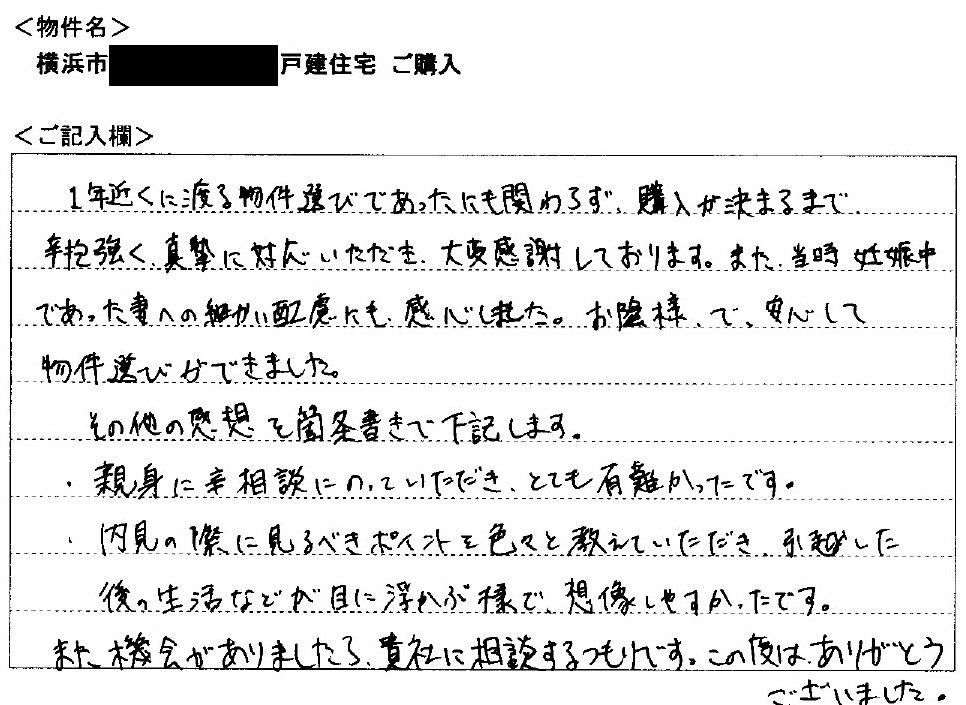 <物件名>
横浜市 戸建住宅 ご購入
<ご記入欄>
1年近くに渡る物件選びであったにも関わらず、購入が決まるまで、
辛抱強く、真摯に対応いただき、大変感謝しております。また、当時妊娠中
であった妻への細かい配慮にも、感心しました。お陰様、で、安心して
物件選びができました。
その他の感想を箇条書きで下記します。
・親身に辛相談にのっていただき、とても有難かったです。
・内見の際に見るべきポイントを色々と教えていただき、引越した
後の生活などが目に浮かぶ様で、想像しやすかったです。
また機会がありましたら、貴社に相談するつもりです。この度は、ありがとう
ございました。